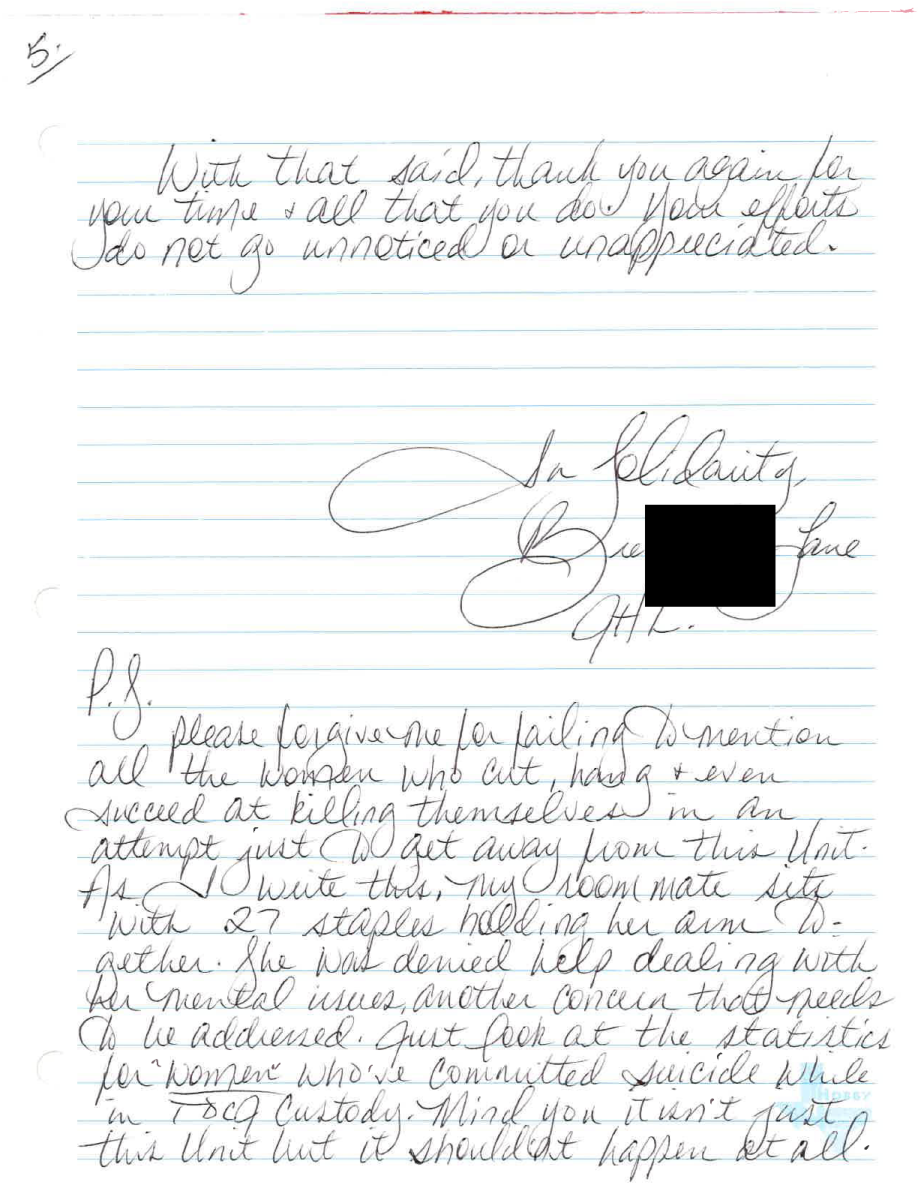 5.
With that said, thank you again for
your time & all that you do. Your efforts
do not go unnoticed or unappreciated.
In Solidarity,
Bre Jane
P.S.
please forgive me for failing to mention
all the women who cut, hang & even
succeed at killing themselves in an
attempt just to get away from this Unit.
As I write this, my roommate sits
with 27 staples holding her arm to-
gether. She was denied help dealing with
her mental issues, another concern that needs
to be addressed. Just look at the statistics
for "women" who've committed suicide while
in TDCJ custody. Mind you it isn't just
this Unit but it should at happen at all.
HOBBY